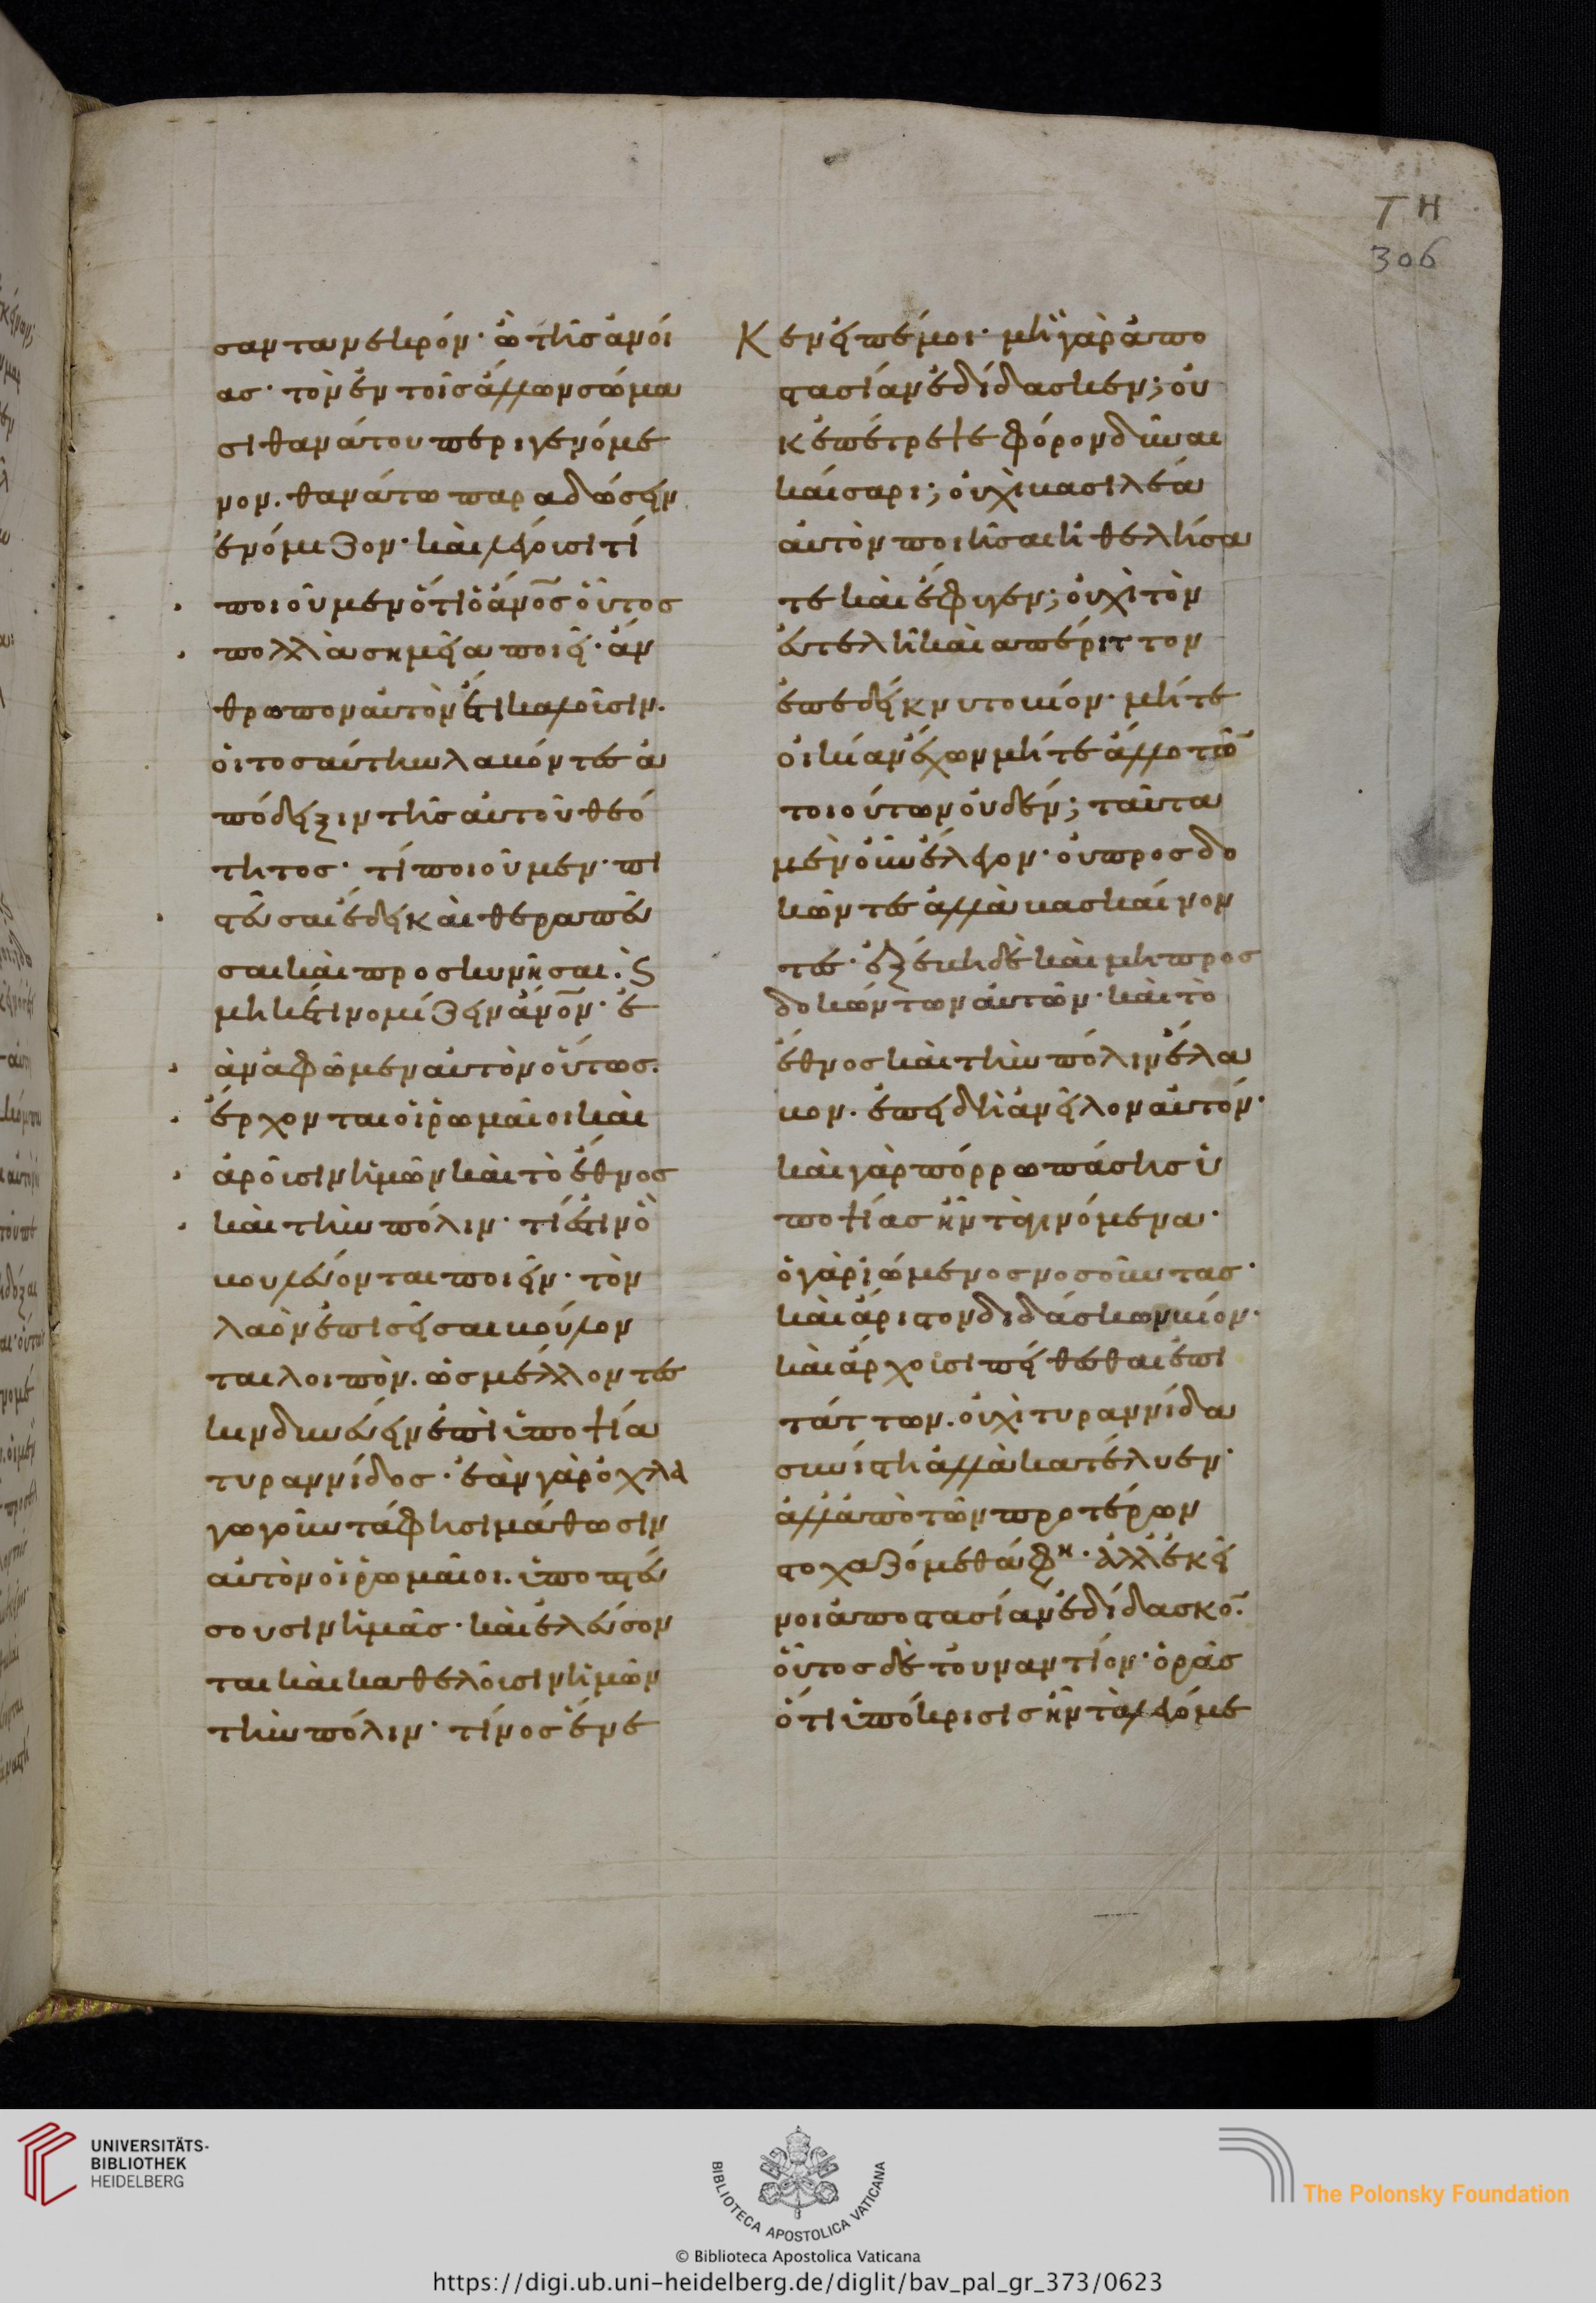 σαν τανεκρόν· ὢ τῆς ἀνοί
ας· τὸν ἐν τοῖς ἄλλων σώμα
σι θανάτου περιγενόμε
νον. θανάτω παραδώσειν
ἐνόμιζον· καὶ λέγουσι τί
ποιοῦμεν ὅτι ὁ ἄνο̅σ οὗτος
πολλὰ σημεῖα ποιεῖ· ἄν
θρωπον αὐτὸν ἔτι καλοῦσιν.
οἱ τοσαύτην λαβόντες ἀ
πόδειξιν τῆς αὐτοῦ θεό
τητος· τί ποιοῦμεν· πι
στεῦσαι ἔδει καὶ θεραπεῦ
σαι καὶ προσκυνῆσαι· ϗ
μηκέτι νομίζειν ἄνο̅ν· ἐ
ὰν ἀφῶμεν αὐτὸν οὕτως.
ἔρχονται οἱ ῥωμαῖοι καὶ
ἀροῦσιν ἡμῶν καὶ τὸ ἔθνος
καὶ τὴν πόλιν· τί ἐστιν ὃ
βουλεύονται ποιεῖν· τὸν
λαὸν ἐπισεῖσαι βούλον
ται λοιπὸν. ὡς μέλλοντες
κινδυνεύειν ἐπὶ ὑποψία
τυραννίδος· ἐὰν γὰρ ὀχλα
γωγοῦντά φησι μάθωσιν
αὐτὸν οἱ ῥωμαῖοι. ὑποπτεύ
σουσιν ἡμᾶς· καὶ ἐλεύσον
ται καὶ καθελοῦσιν ἡμῶν
τὴν πόλιν· τίνος ἕνε
Κεν εἰπέ μοι· μὴ γὰρ ἀπο
στασίαν ἐδίδασκεν; οὐ
κ ἐπέτρεψε φόρον δοῦναι
καίσαρι; οὐχὶ βασιλέα
αὐτὸν ποιῆσαι ἠθελήσα
τε καὶ ἔφυγεν; οὐχὶ τὸν
εὐτελῆ καὶ ἀπέριττον
ἐπεδείκνυτο βίον· μήτε
οἰκίαν ἔχων μήτε ἄλλο τῶ̅
τοιούτων οὐδέν; ταῦτα
μὲν οὖν ἔλεγον· οὐ προσδο
κῶντες ἀλλὰ βασκαίνον
τες· ἐξέβη δὲ καὶ μὴ προσ
δοκώντων αὐτῶν· καὶ τὸ
ἔθνος καὶ τὴν πόλιν ἔλα
βον. ἐπειδὴ ἀνεῖλον αὐτόν·
καὶ γὰρ πόρρω πάσης ὑ
ποψίας ἦν τὰ γινόμενα·
ὁ γὰρ ἰώμενος νοσοῦντας·
καὶ ἄριστον διδάσκων βίον·
καὶ ἄρχουσι πείθεσθαι ἐπι
τάττων. οὐχὶ τυραννίδα
συνίστη ἀλλὰ κατέλυεν·
ἀλλ ἀπὸ τῶν προτέρων
στοχαζόμεθά φη· ἀλλ ἐκεῖ
νοι ἀποστασίαν ἐδίδασκο̅.
οὗτος δὲ τοὐναντίον· ὁρᾶς
ὅτι ὑπόκρισις ἦν τὰ λεγόμε
ΤΗ
306
UNIVERSITÄTS-
BIBLIOTHEK
HEIDELBERG
BIBLIOTECA APOSTOLICA VATICANA
The Polonsky Foundation
© Biblioteca Apostolica Vaticana
https://digi.ub.uni-heidelberg.de/diglit/bav_pal_gr_373/0623